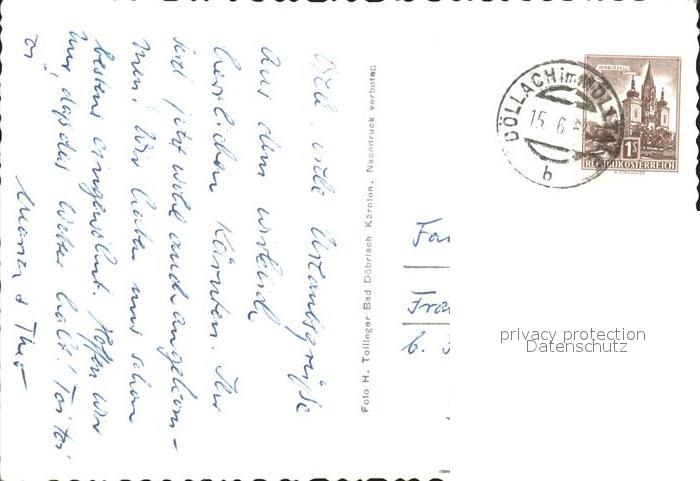 Viele, viele Urlaubsgrüße
aus dem wirklich
herrlichen Kärnten. Ihr
seid jetzt wohl auch angekom-
men! Wir haben uns schon
bestens eingewöhnt. Hoffen wir
nur, daß das Wetter hält! Toi toi
toi!
Foto H. Tollinger Bad Döbriach Kärnten, Nachdruck verboten
DÖLLACH im MÖLLT
15. 6.
b
1 S
REPUBLIK ÖSTERREICH
Fa
Fra
b.
privacy protection
Datenschutz